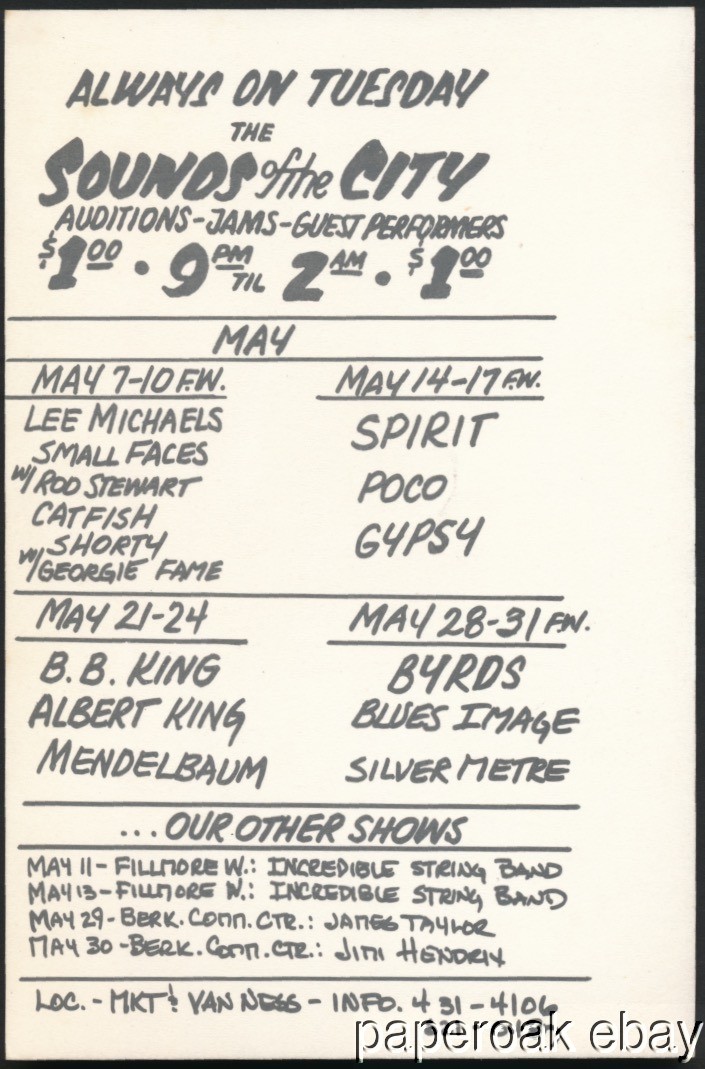 ALWAYS ON TUESDAY
THE
SOUNDS of the CITY
AUDITIONS-JAMS-GUEST PERFORMERS
$1.00 • 9 PM TIL 2 AM • $1.00
MAY
MAY 7-10 F.W.
LEE MICHAELS
SMALL FACES
W/ ROD STEWART
CATFISH
SHORTY
W/ GEORGIE FAME
MAY 14-17 F.W.
SPIRIT
POCO
GYPSY
MAY 21-24
B.B. KING
ALBERT KING
MENDELBAUM
MAY 28-31 F.W.
BYRDS
BLUES IMAGE
SILVER METRE
...OUR OTHER SHOWS
MAY 11- FILLMORE W.: INCREDIBLE STRING BAND
MAY 13- FILLMORE W.: INCREDIBLE STRING BAND
MAY 29- BERK. COMM. CTR.: JAMES TAYLOR
MAY 30 -BERK. COMM. CTR.: JIMI HENDRIX
LOC. - MKT & VAN NESS - INFO. 431-4106
paperoak ebay